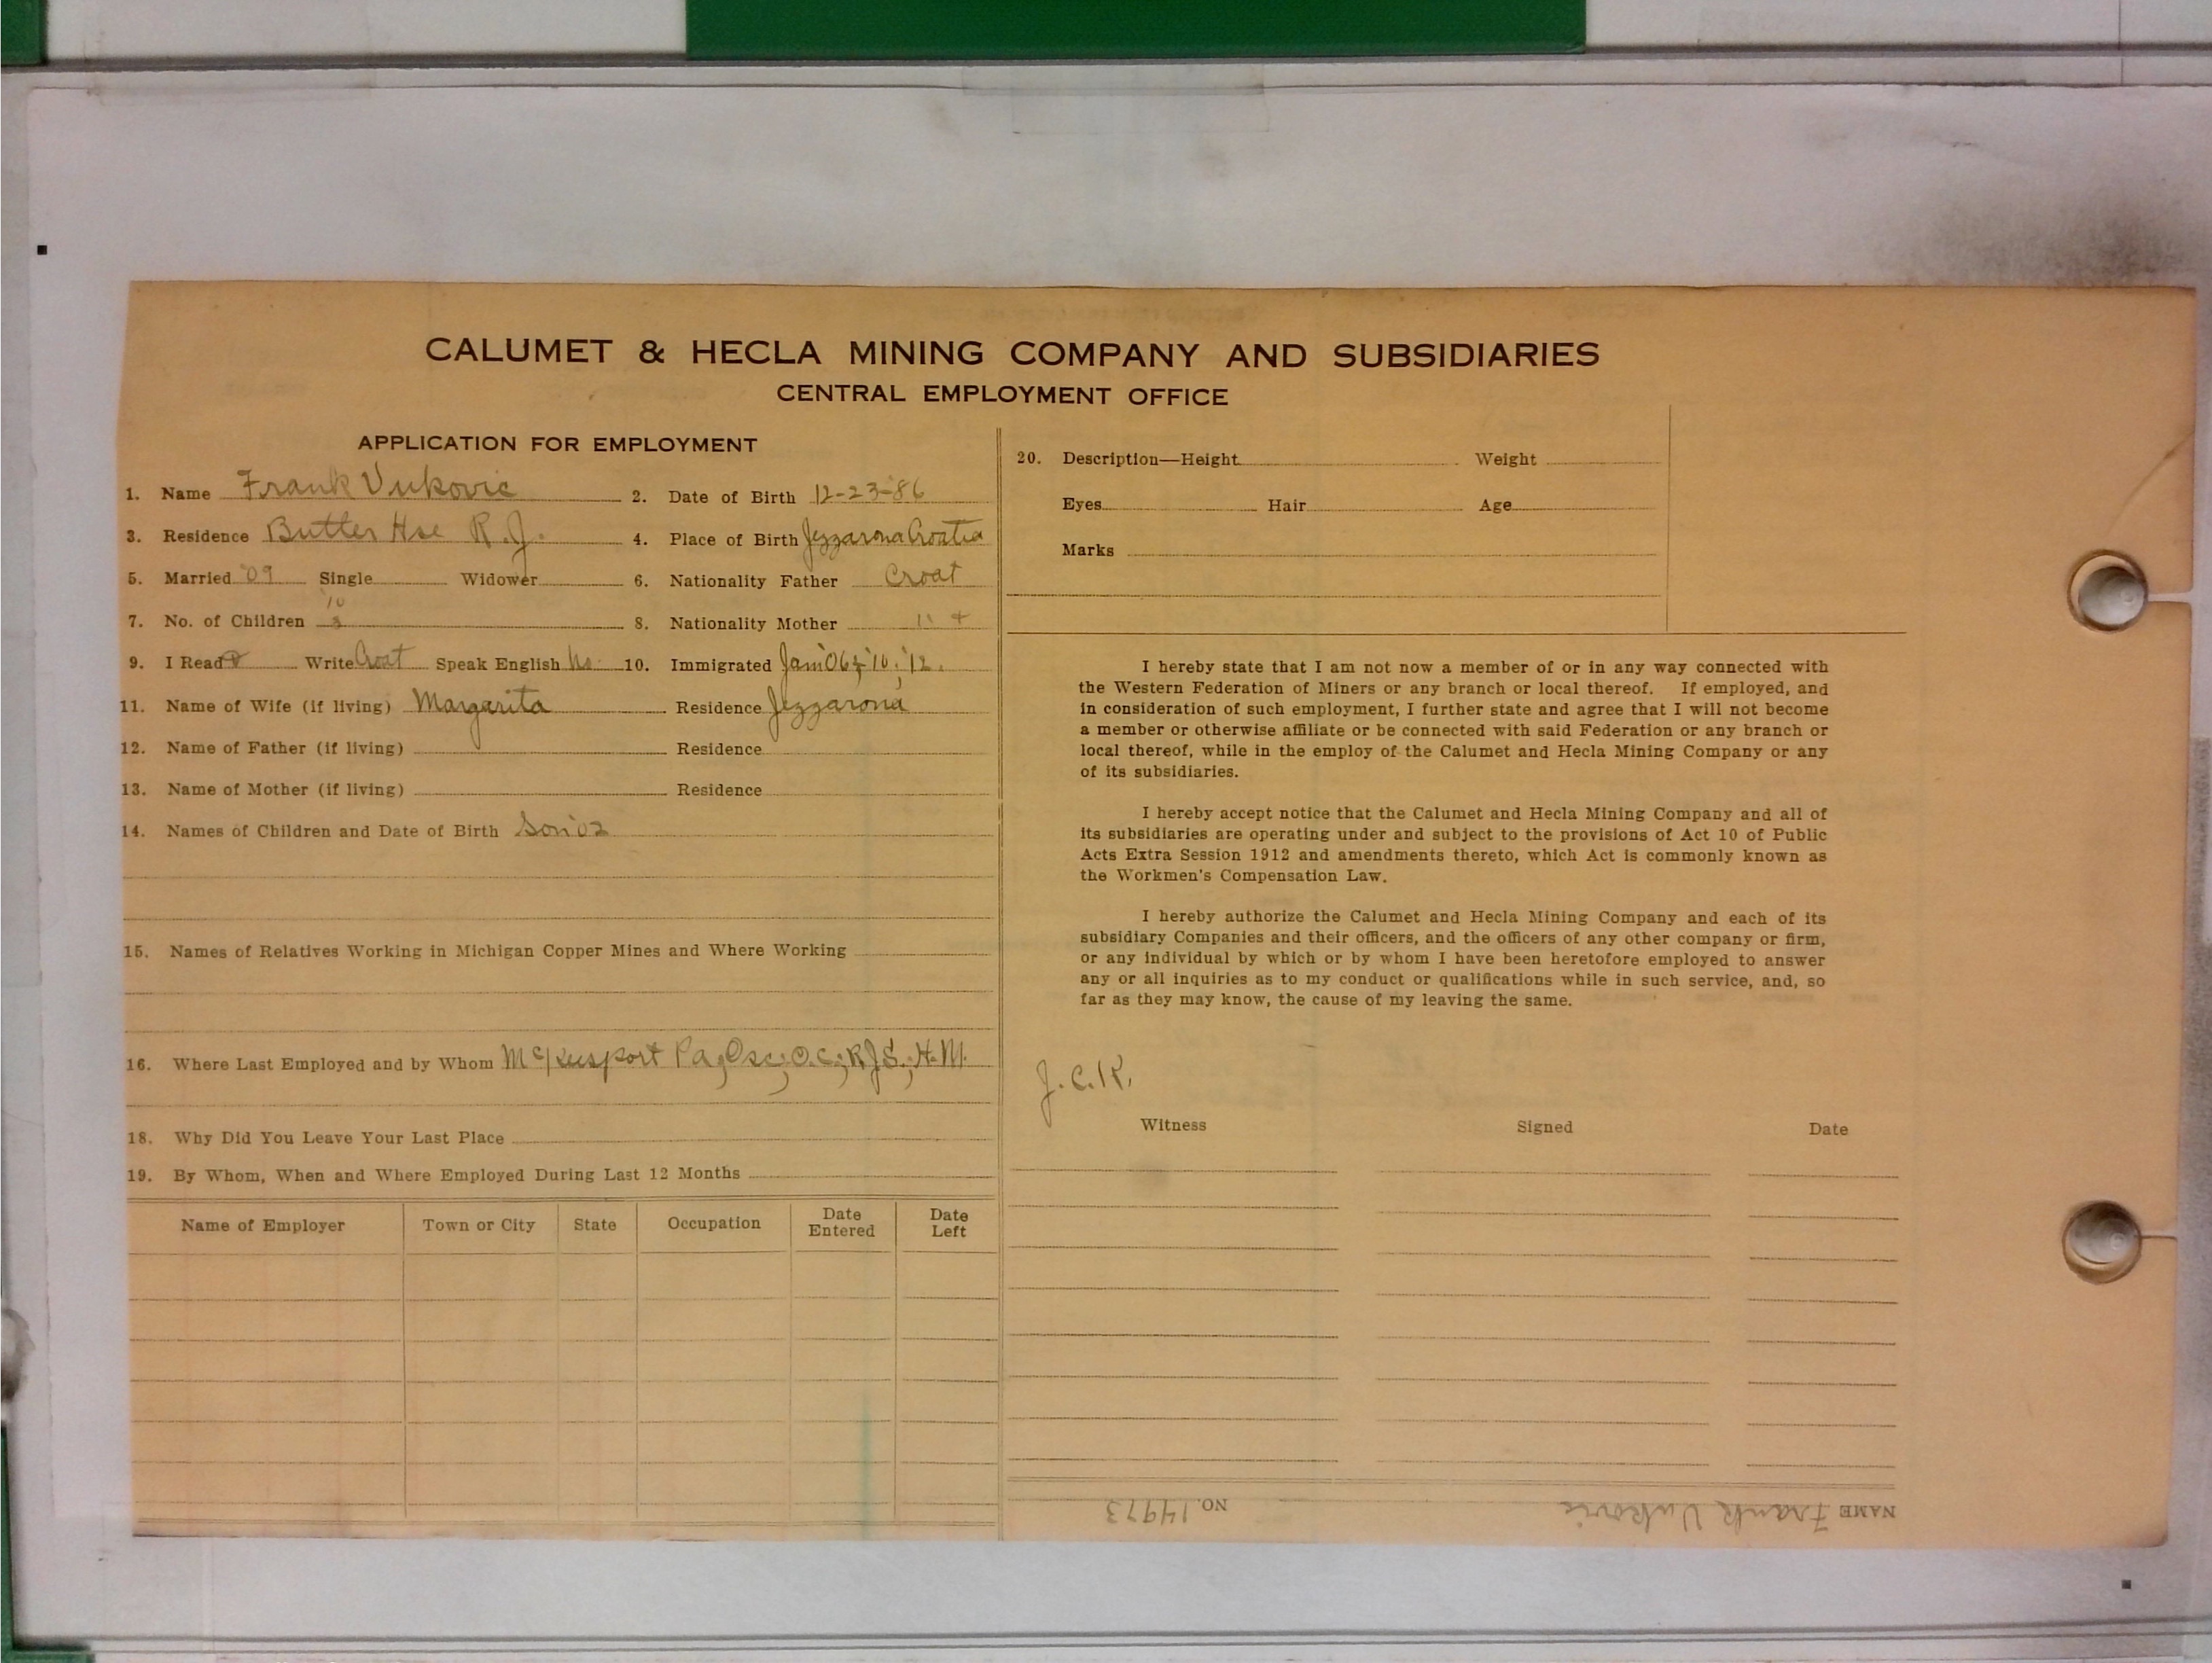 CALUMET & HECLA MINING COMPANY AND SUBSIDIARIES
CENTRAL EMPLOYMENT OFFICE
APPLICATION FOR EMPLOYMENT
1. Name Frank Vukovic 2. Date of Birth 12-23-86
3. Residence Butler Hse R.J. 4. Place of Birth Jezzarona Croatia
5. Married '09 Single Widower 6. Nationality Father Croat
7. No. of Children 8. Nationality Mother
9. I Read Write Croat Speak English No 10. Immigrated Jan '06; '10; '12.
11. Name of Wife (if living) Margarita Residence Jezzarona
12. Name of Father (if living) Residence
13. Name of Mother (if living) Residence
14. Names of Children and Date of Birth Son
15. Names of Relatives Working in Michigan Copper Mines and Where Working
16. Where Last Employed and by Whom McKeesport Pa; Osc; O.C.; R.J.S.; H.M.
18. Why Did You Leave Your Last Place
19. By Whom, When and Where Employed During Last 12 Months
Name of Employer Town or City State Occupation Date Entered Date Left
20. Description—Height Weight
Eyes Hair Age
Marks
I hereby state that I am not now a member of or in any way connected with
the Western Federation of Miners or any branch or local thereof. If employed, and
in consideration of such employment, I further state and agree that I will not become
a member or otherwise affiliate or be connected with said Federation or any branch or
local thereof, while in the employ of the Calumet and Hecla Mining Company or any
of its subsidiaries.
I hereby accept notice that the Calumet and Hecla Mining Company and all of
its subsidiaries are operating under and subject to the provisions of Act 10 of Public
Acts Extra Session 1912 and amendments thereto, which Act is commonly known as
the Workmen's Compensation Law.
I hereby authorize the Calumet and Hecla Mining Company and each of its
subsidiary Companies and their officers, and the officers of any other company or firm,
or any individual by which or by whom I have been heretofore employed to answer
any or all inquiries as to my conduct or qualifications while in such service, and, so
far as they may know, the cause of my leaving the same.
J.C.K.
Witness Signed Date
NAME Frank Vukovic NO. 14973